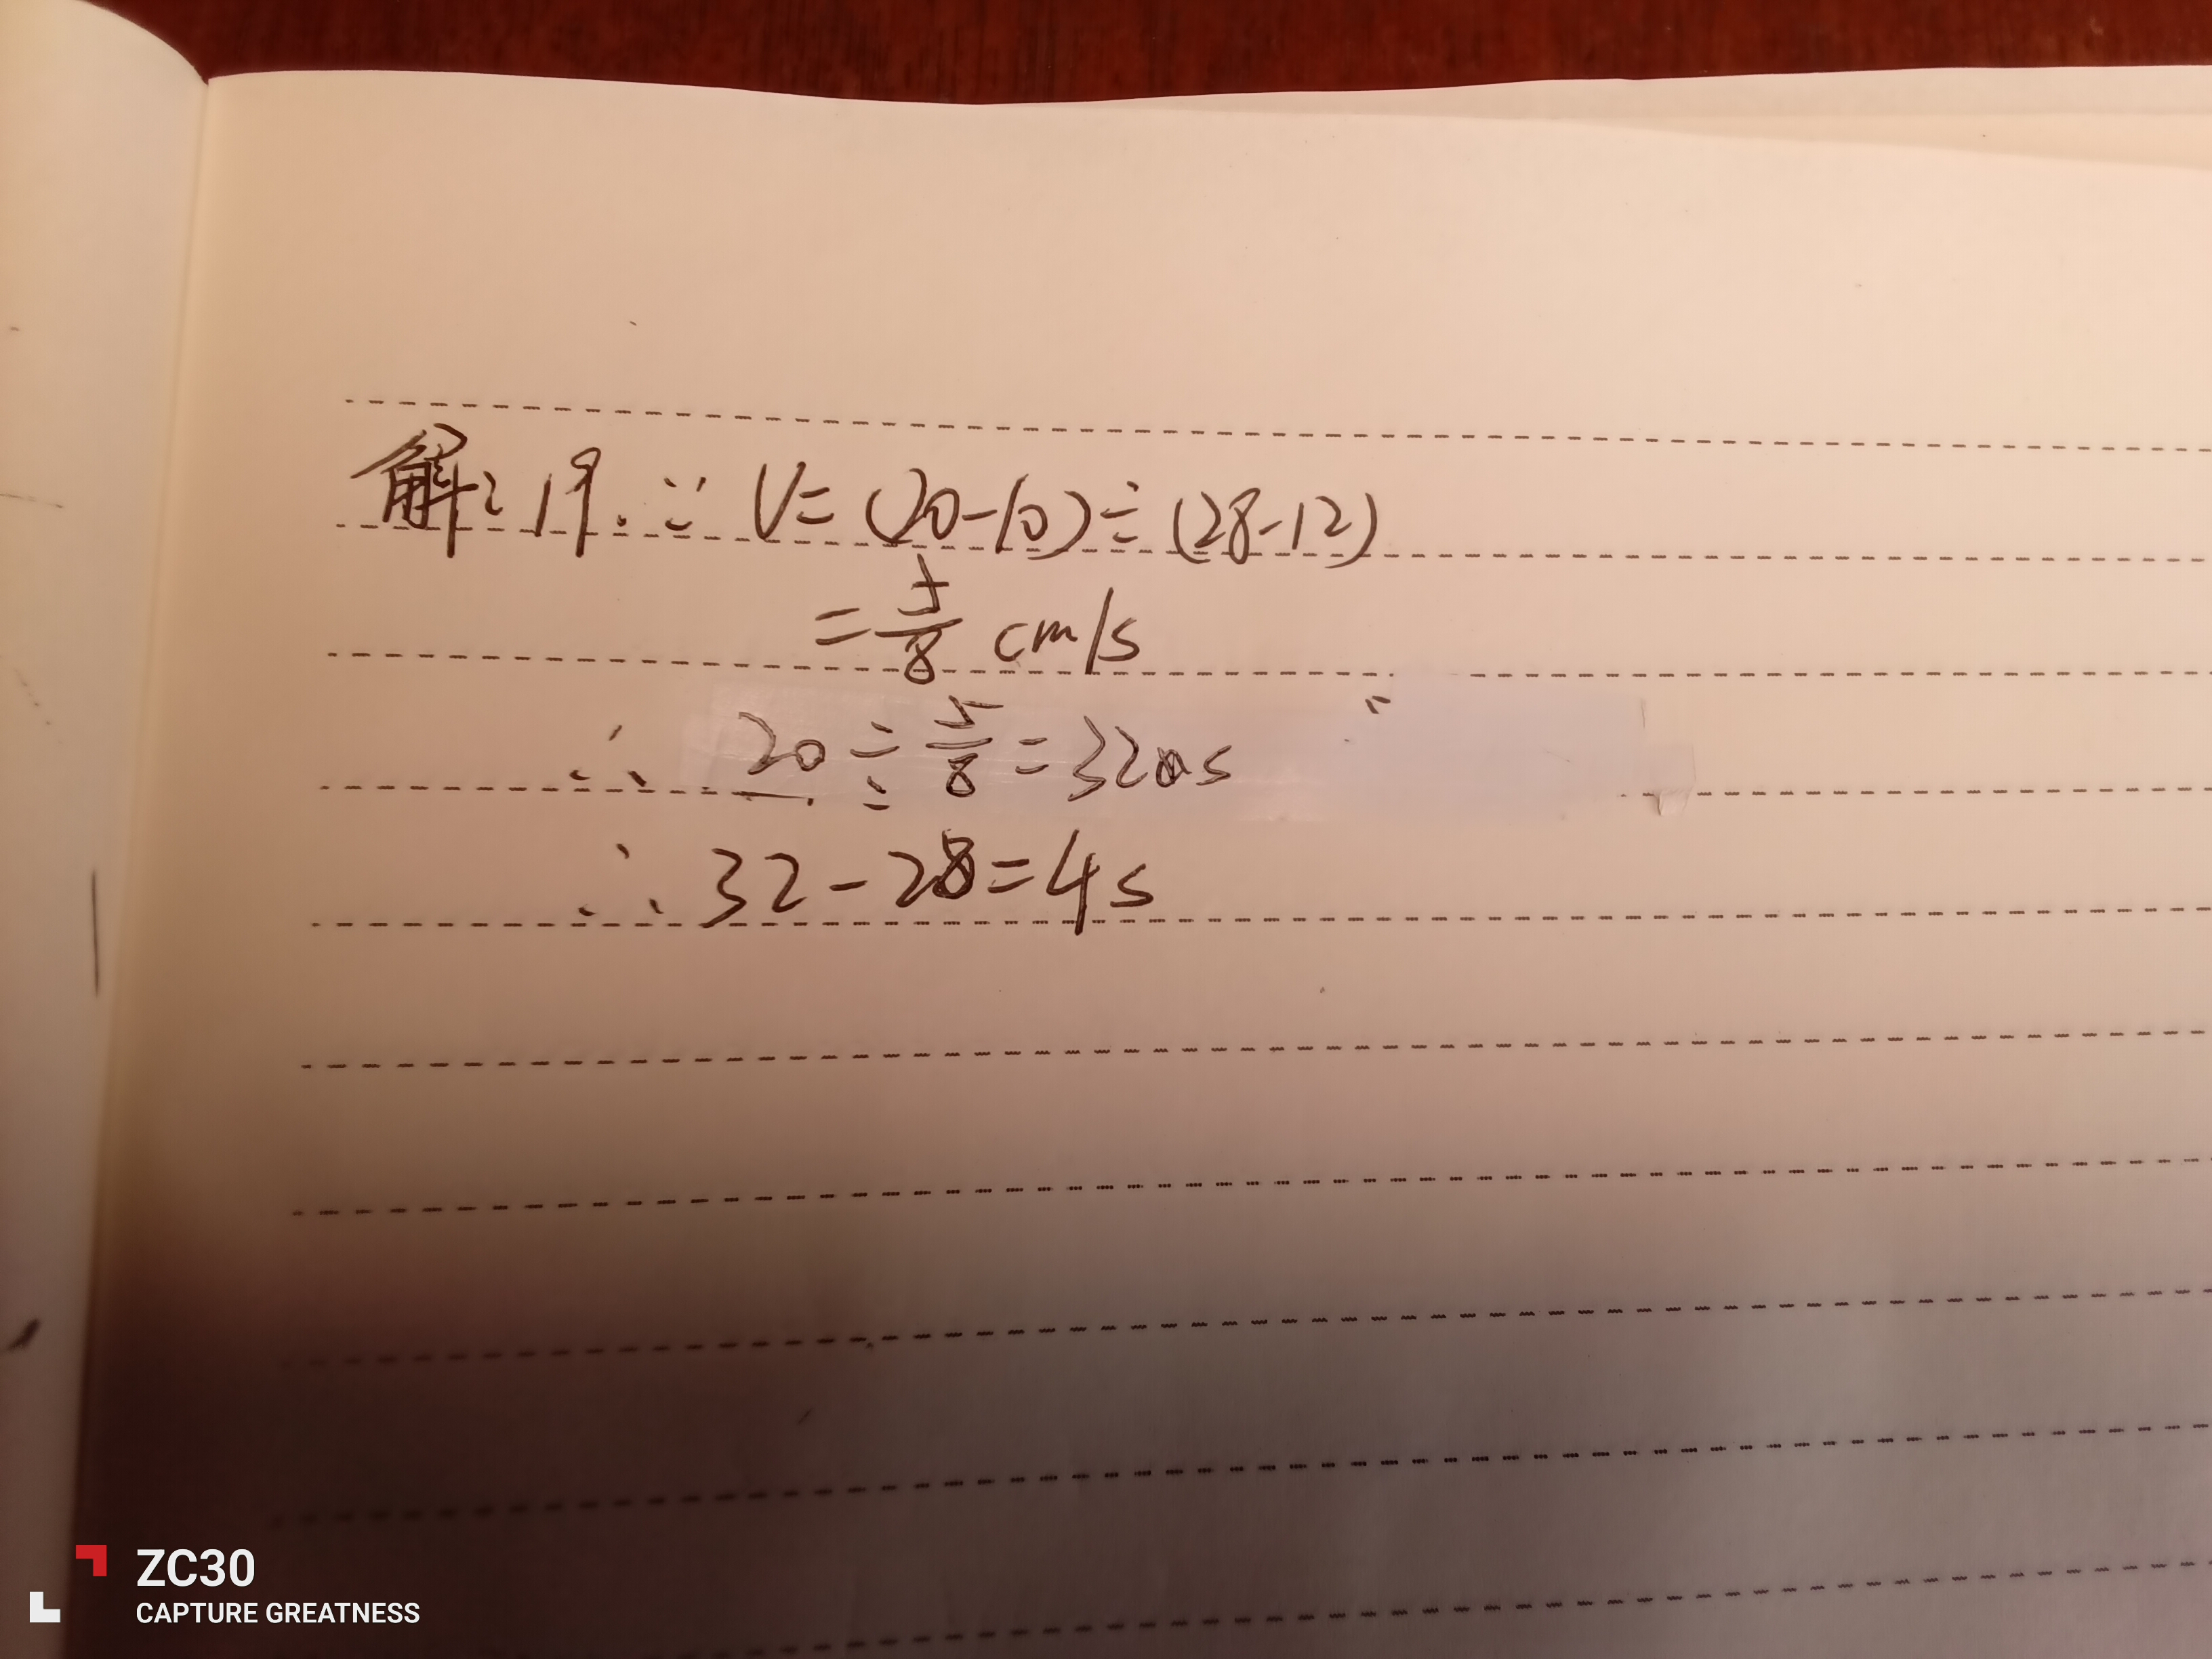 解: 19. ∵ V=(20-10)÷(28-12)
=5/8 cm/s
∴ 20÷5/8=32s
∴ 32-28=4s
ZC30
CAPTURE GREATNESS